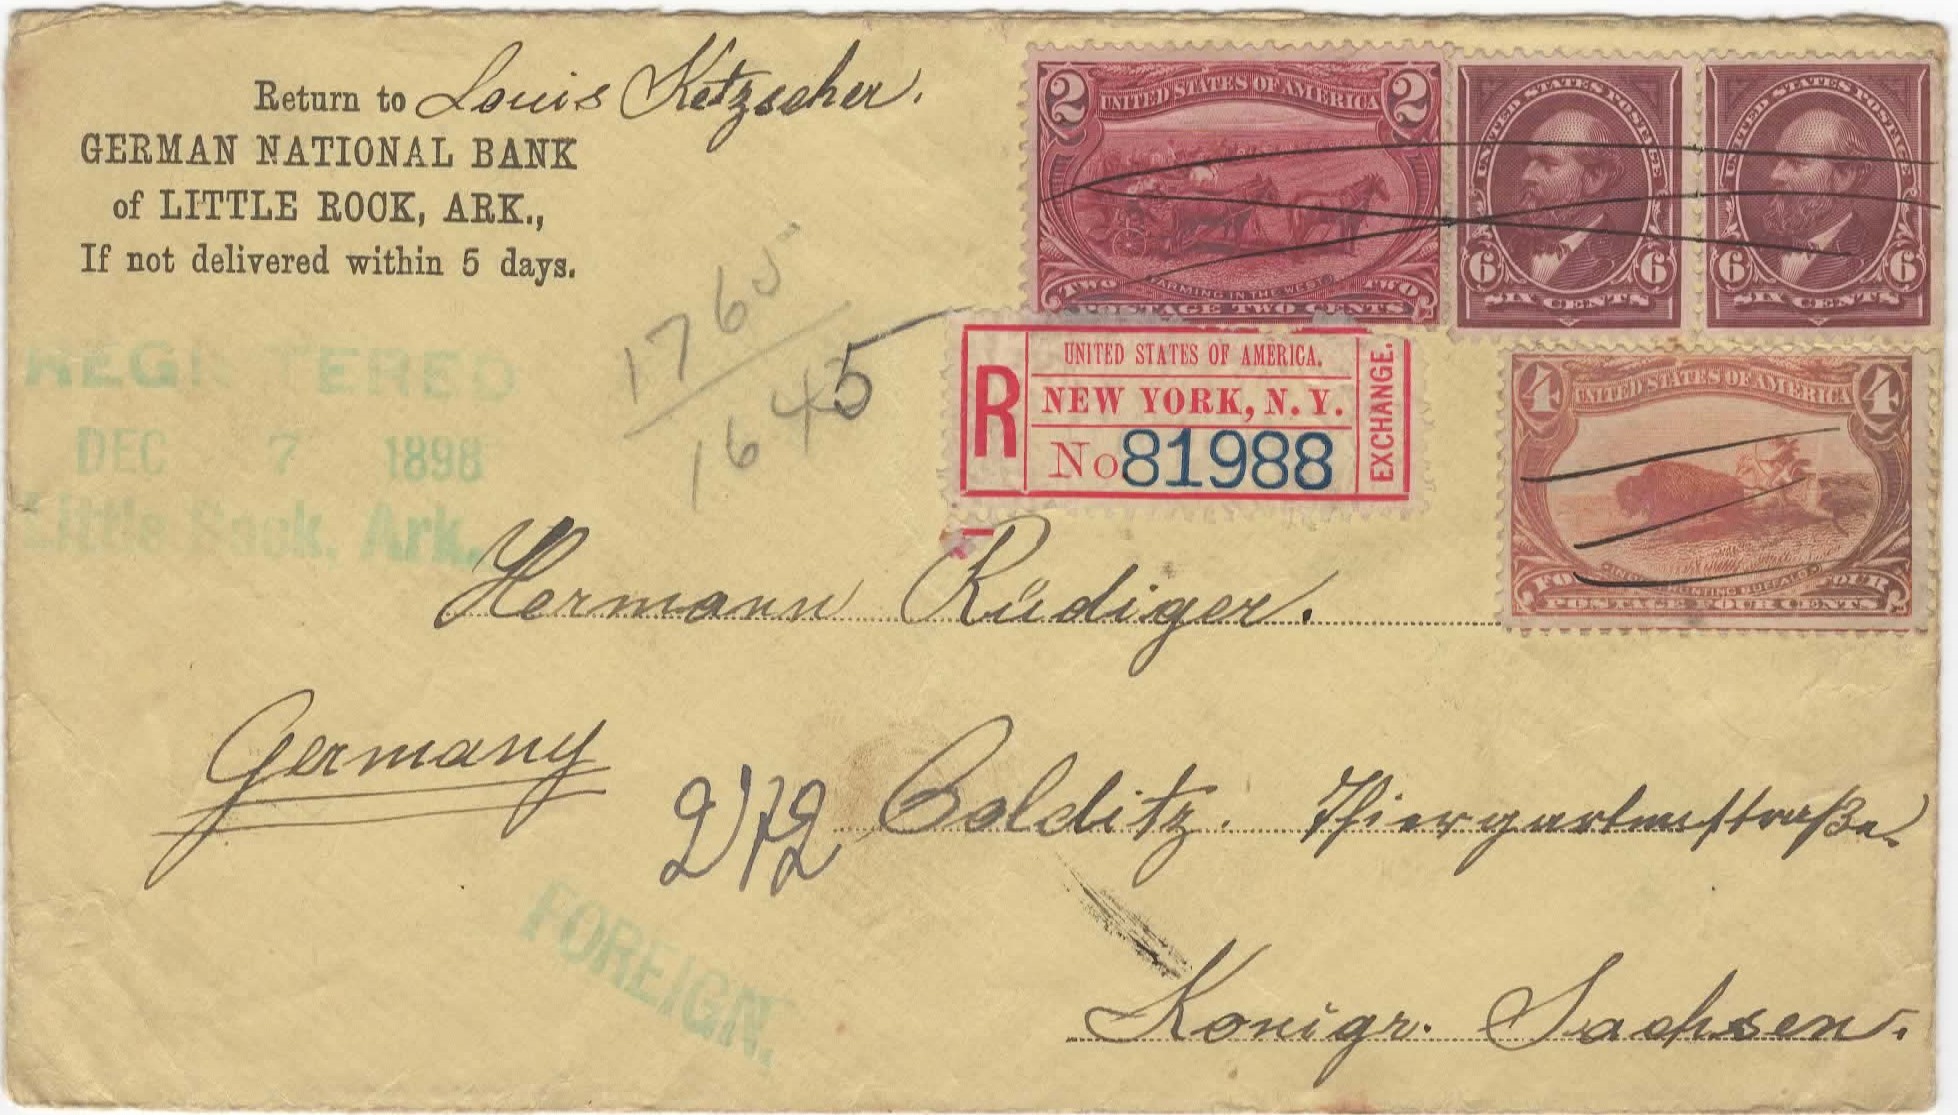 Return to Louis Ketzscher.
GERMAN NATIONAL BANK
of LITTLE ROCK, ARK.,
If not delivered within 5 days.
2 UNITED STATES OF AMERICA 2
TWO FARMING IN THE WEST TWO
POSTAGE TWO CENTS
UNITED STATES POSTAGE
6 6
SIX CENTS
UNITED STATES POSTAGE
6 6
SIX CENTS
REGISTERED
DEC 7 1898
Little Rock, Ark.
1765
1645
R
UNITED STATES OF AMERICA.
NEW YORK, N.Y.
No 81988
EXCHANGE.
4 UNITED STATES OF AMERICA 4
FOUR HUNTING BUFFALO FOUR
POSTAGE FOUR CENTS
Hermann Rüdiger.
Germany
Colditz. Thiergartenstraße.
FOREIGN.
Königr. Sachsen.